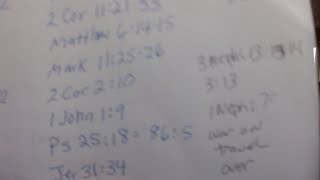 2 Cor 11:21-33
Matthew 6:14-15
Mark 11:25-26
2 Cor 2:10
1 John 1:9
Ps 25:18 = 86:5
Jer 31:34
3 Nephi 13:
3:13
1 Neph: 7:
war on
travel
over